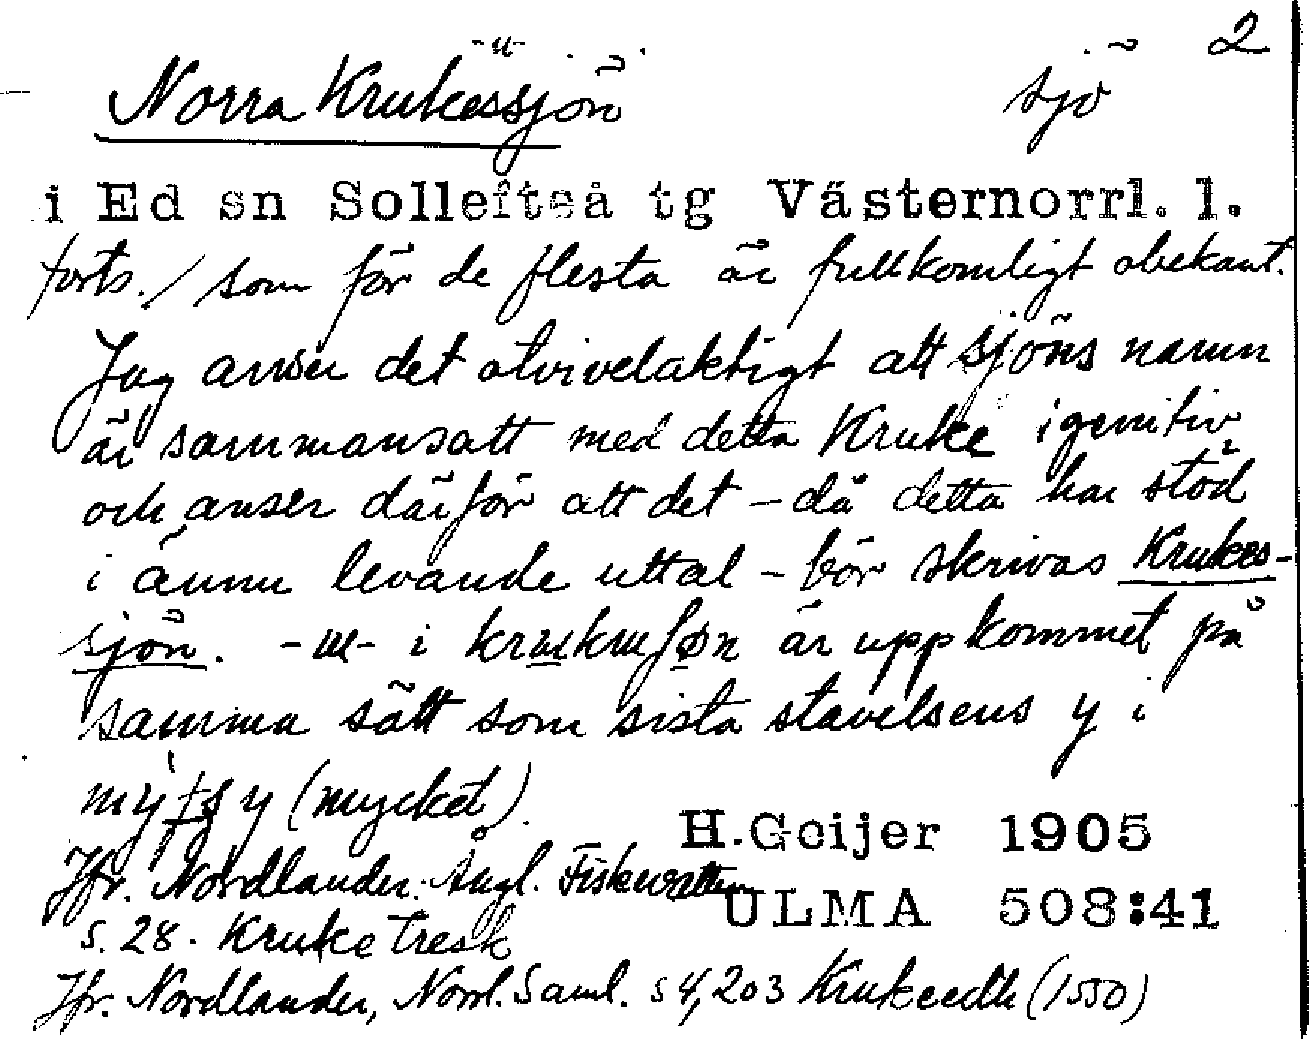 2
-u-
Norra Krukessjön sjö
i Ed sn Sollefteå tg Västernorrl. l.
forts./ som för de flesta är fullkomligt obekant.
Jag anser det otvivelaktigt att sjöns namn
är sammansatt med detta Kruke i genitiv
och anser därför att det – då detta har stöd
i ännu levande uttal – bör skrivas Krukes-
sjön. -ɯ- i är uppkommet på
samma sätt som sista stavelsens y i
(mycket).
H.Geijer 1905
Jfr. Nordlander. Ångl. Fiskevatten
ULMA 508:41
s. 28. Kruke Tresk
Jfr. Nordlander, Norrl. Saml. s 4,203 Krukeedh (1550)